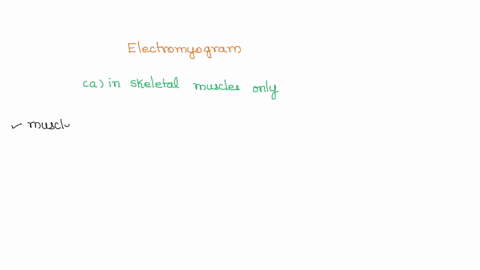 Electromyogram
(a) in skeletal muscles only
✓ muscl